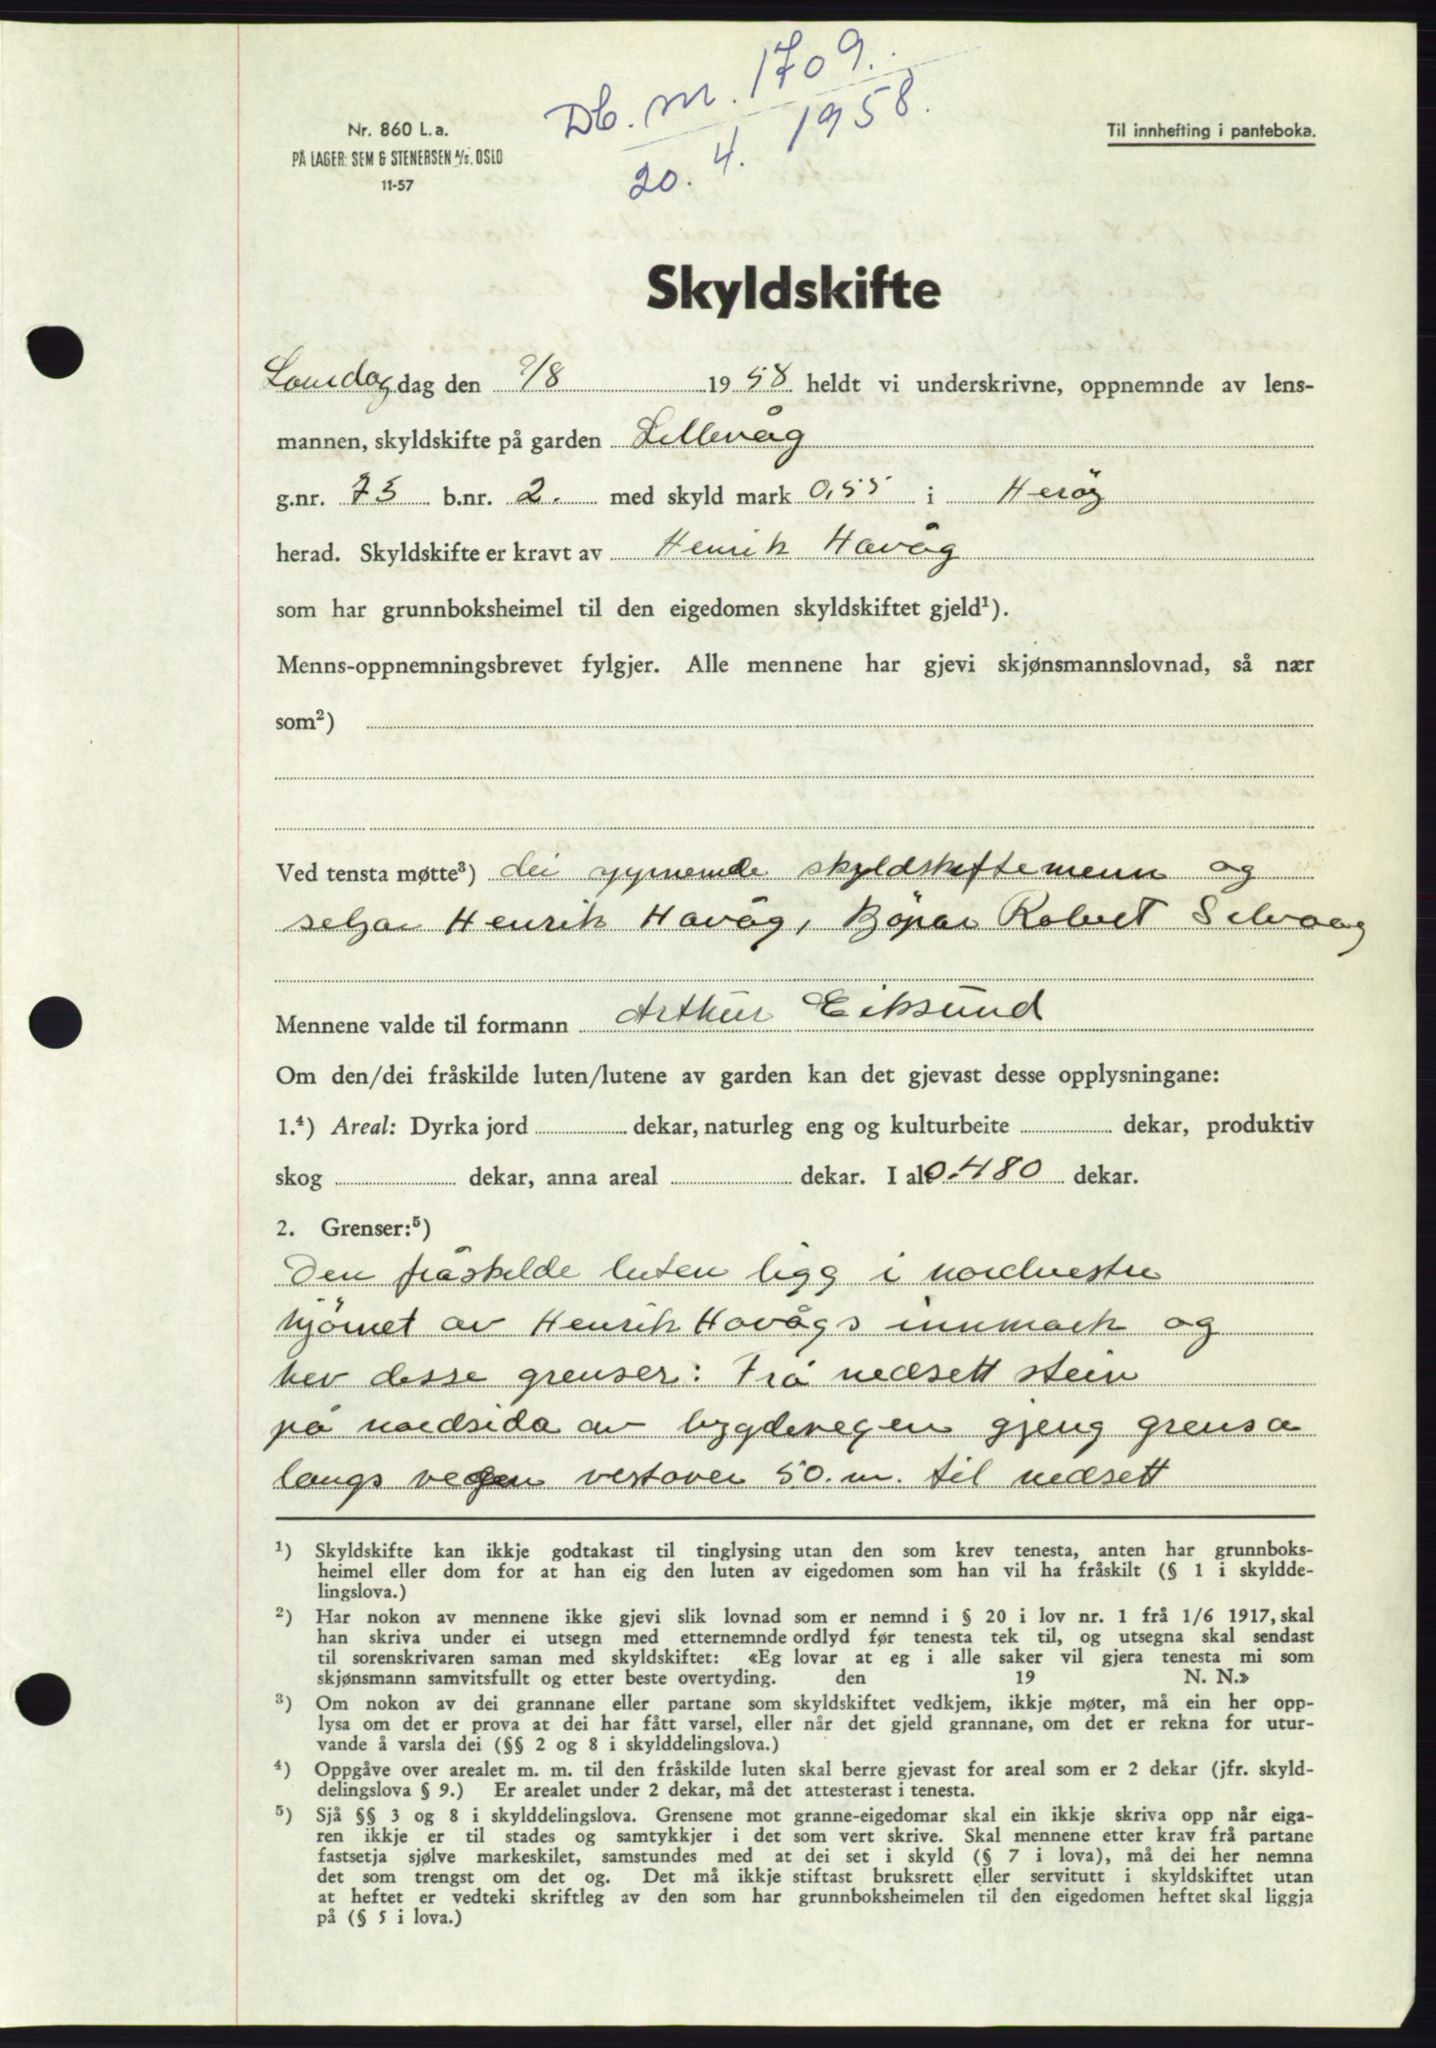 Db. nr. 1709.
20. 4. 1958.
Nr. 860 L.a.
PÅ LAGER: SEM & STENERSEN A/S. OSLO
11-57
Til innhefting i panteboka.
Skyldskifte
dag den /8 1958 heldt vi underskrivne, oppnemnde av lens-
mannen, skyldskifte på garden Lillevåg
g.nr. 75 b.nr. 2. med skyld mark 0,55 i Herøy
herad. Skyldskifte er kravt av Henrik Havåg
som har grunnboksheimel til den eigedomen skyldskiftet gjeld¹).
Menns-oppnemningsbrevet fylgjer. Alle mennene har gjevi skjønsmannslovnad, så nær
som²)
Ved tensta møtte³) dei oppnemde skyldskiftemenn og
seljar Henrik Havåg, Robert Selvaag
Mennene valde til formann Arthur Eiksund
Om den/dei fråskilde luten/lutene av garden kan det gjevast desse opplysningane:
1.⁴) Areal: Dyrka jord dekar, naturleg eng og kulturbeite dekar, produktiv
skog dekar, anna areal dekar. I alt 0.480 dekar.
2. Grenser:⁵)
Den fråskilde luten ligg i nordvestre
hjörnet av Henrik Havågs innmark og
hev desse grenser: Frå nedsett stein
på nordsida av bygdevegen gjeng grensa
langs vegen vestover 50. m. til nedsett
¹) Skyldskifte kan ikkje godtakast til tinglysing utan den som krev tenesta, anten har grunnboks-
heimel eller dom for at han eig den luten av eigedomen som han vil ha fråskilt (§ 1 i skyldde-
lingslova.)
²) Har nokon av mennene ikke gjevi slik lovnad som er nemnd i § 20 i lov nr. 1 frå 1/6 1917, skal
han skriva under ei utsegn med etternemnde ordlyd før tenesta tek til, og utsegna skal sendast
til sorenskrivaren saman med skyldskiftet: «Eg lovar at eg i alle saker vil gjera tenesta mi som
skjønsmann samvitsfullt og etter beste overtyding. den 19 N. N.»
³) Om nokon av dei grannane eller partane som skyldskiftet vedkjem, ikkje møter, må ein her opp-
lysa om det er prova at dei har fått varsel, eller når det gjeld grannane, om det er rekna for utur-
vande å varsla dei (§§ 2 og 8 i skylddelingslova.)
⁴) Oppgåve over arealet m. m. til den fråskilde luten skal berre gjevast for areal som er 2 dekar (jfr. skyld-
delingslova § 9.) Er arealet under 2 dekar, må det attesterast i tenesta.
⁵) Sjå §§ 3 og 8 i skylddelingslova. Grensene mot granne-eigedomar skal ein ikkje skriva opp når eiga-
ren ikkje er til stades og samtykkjer i det som vert skrive. Skal mennene etter krav frå partane
fastsetja sjølve markeskilet, samstundes med at dei set i skyld (§ 7 i lova), må dei her nemna
det som trengst om det og. Det må ikkje stiftast bruksrett eller servitutt i skyldskiftet utan
at heftet er vedteki skriftleg av den som har grunnboksheimelen til den eigedomen heftet skal liggja
på (§ 5 i lova.)